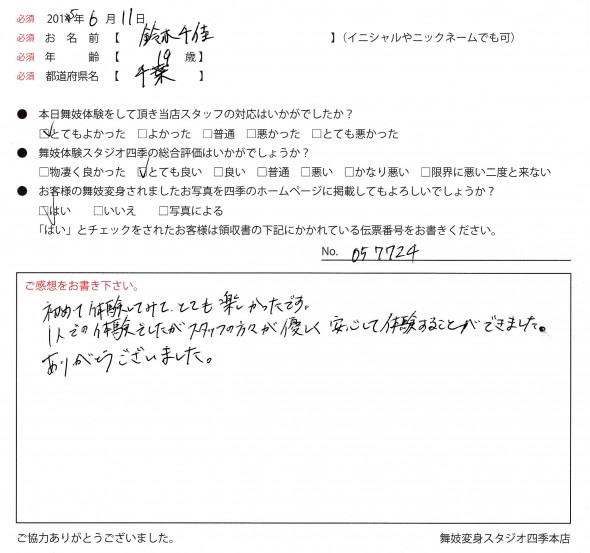 必須 2015年 6 月 11 日
必須 お 名 前 【 鈴木千佳 】(イニシャルやニックネームでも可)
必須 年 齢 【 19 歳】
必須 都道府県名 【 千葉 】
● 本日舞妓体験をして頂き当店スタッフの対応はいかがでしたか？
□とてもよかった □よかった □普通 □悪かった □とても悪かった
● 舞妓体験スタジオ四季の総合評価はいかがでしょうか？
□物凄く良かった □とても良い □良い □普通 □悪い □かなり悪い □限界に悪い二度と来ない
● お客様の舞妓変身されましたお写真を四季のホームページに掲載してもよろしいでしょうか？
□はい □いいえ □写真による
「はい」とチェックをされたお客様は領収書の下記にかかれている伝票番号をお書きください。
No. 057724
ご感想をお書き下さい。
初めて体験してみて、とても楽しかったです。
1人での体験でしたがスタッフの方々が優しく安心して体験することができました。
ありがとうございました。
ご協力ありがとうございました。 舞妓変身スタジオ四季本店